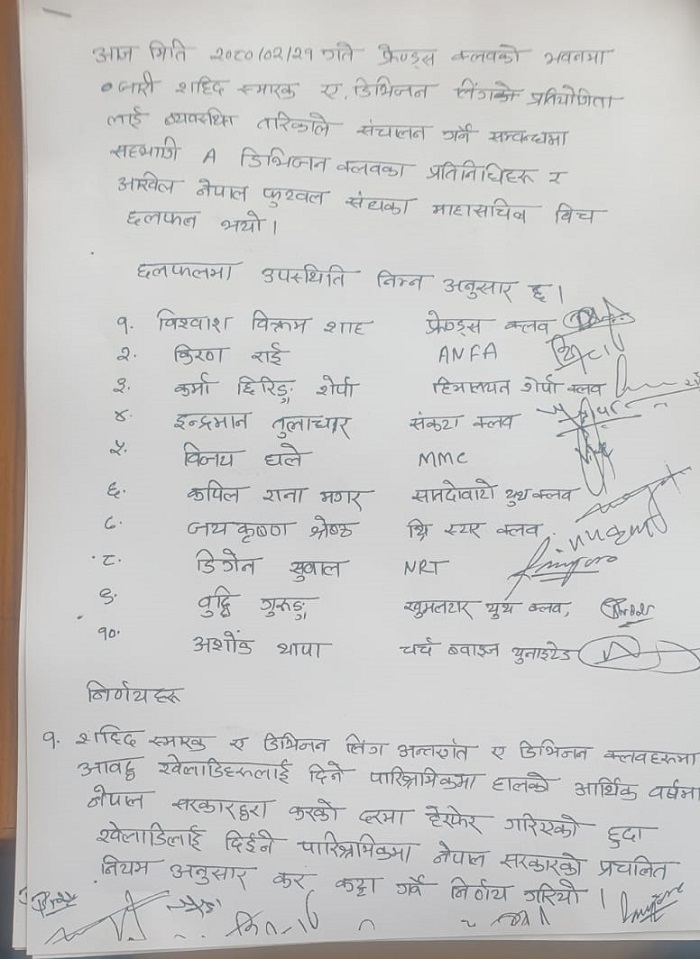 आज मिति २०८०/०२/२१ गते फ्रेण्ड्स क्लवको भवनमा
जारी शहिद स्मारक ए. डिभिजन लिगको प्रतियोगिता
लाई व्यवस्थित तरिकाले संचालन गर्ने सम्वन्धमा
सहभागि A डिभिजन क्लवका प्रतिनिधिहरु र
अखिल नेपाल फुटवल संघका माहासचिव बिच
छलफल भयो।
छलफलमा उपस्थिति निम्न अनुसार छ।
१. विश्वाश विक्रम शाह फ्रेण्ड्स क्लव
२. किरण राई ANFA
३. कर्मा छिरिङ्ग शेर्पा हिमालयन शेर्पा क्लव
४. इन्द्रमान तुलाधार संकटा क्लव
५. विजय घले MMC
६. कपिल राना मगर सातदोवाटो युथ क्लव
८. जय कृष्ण श्रेष्ठ थ्रि स्टार क्लव
८. डिगेन सुवाल NRT
९. वुद्धि गुरुङ्ग खुमलटार युथ क्लव,
१०. अशोक थापा चर्च ब्वाइज युनाइटेड
निर्णयहरु
१. शहिद स्मारक ए डिभिजन लिग अन्तर्गत ए डिभिजन क्लवहरुमा
आवद्ध खेलाडिहरुलाई दिने पारिश्रामिकमा हालको आर्थिक वर्षमा
नेपाल सरकारद्वारा करको दरमा हेरफेर गरिएको हुदा
खेलाडिलाई दिईने पारिश्रामिकमा नेपाल सरकारको प्रचलित
नियम अनुसार कर कट्टा गर्ने निर्णय गरियो।